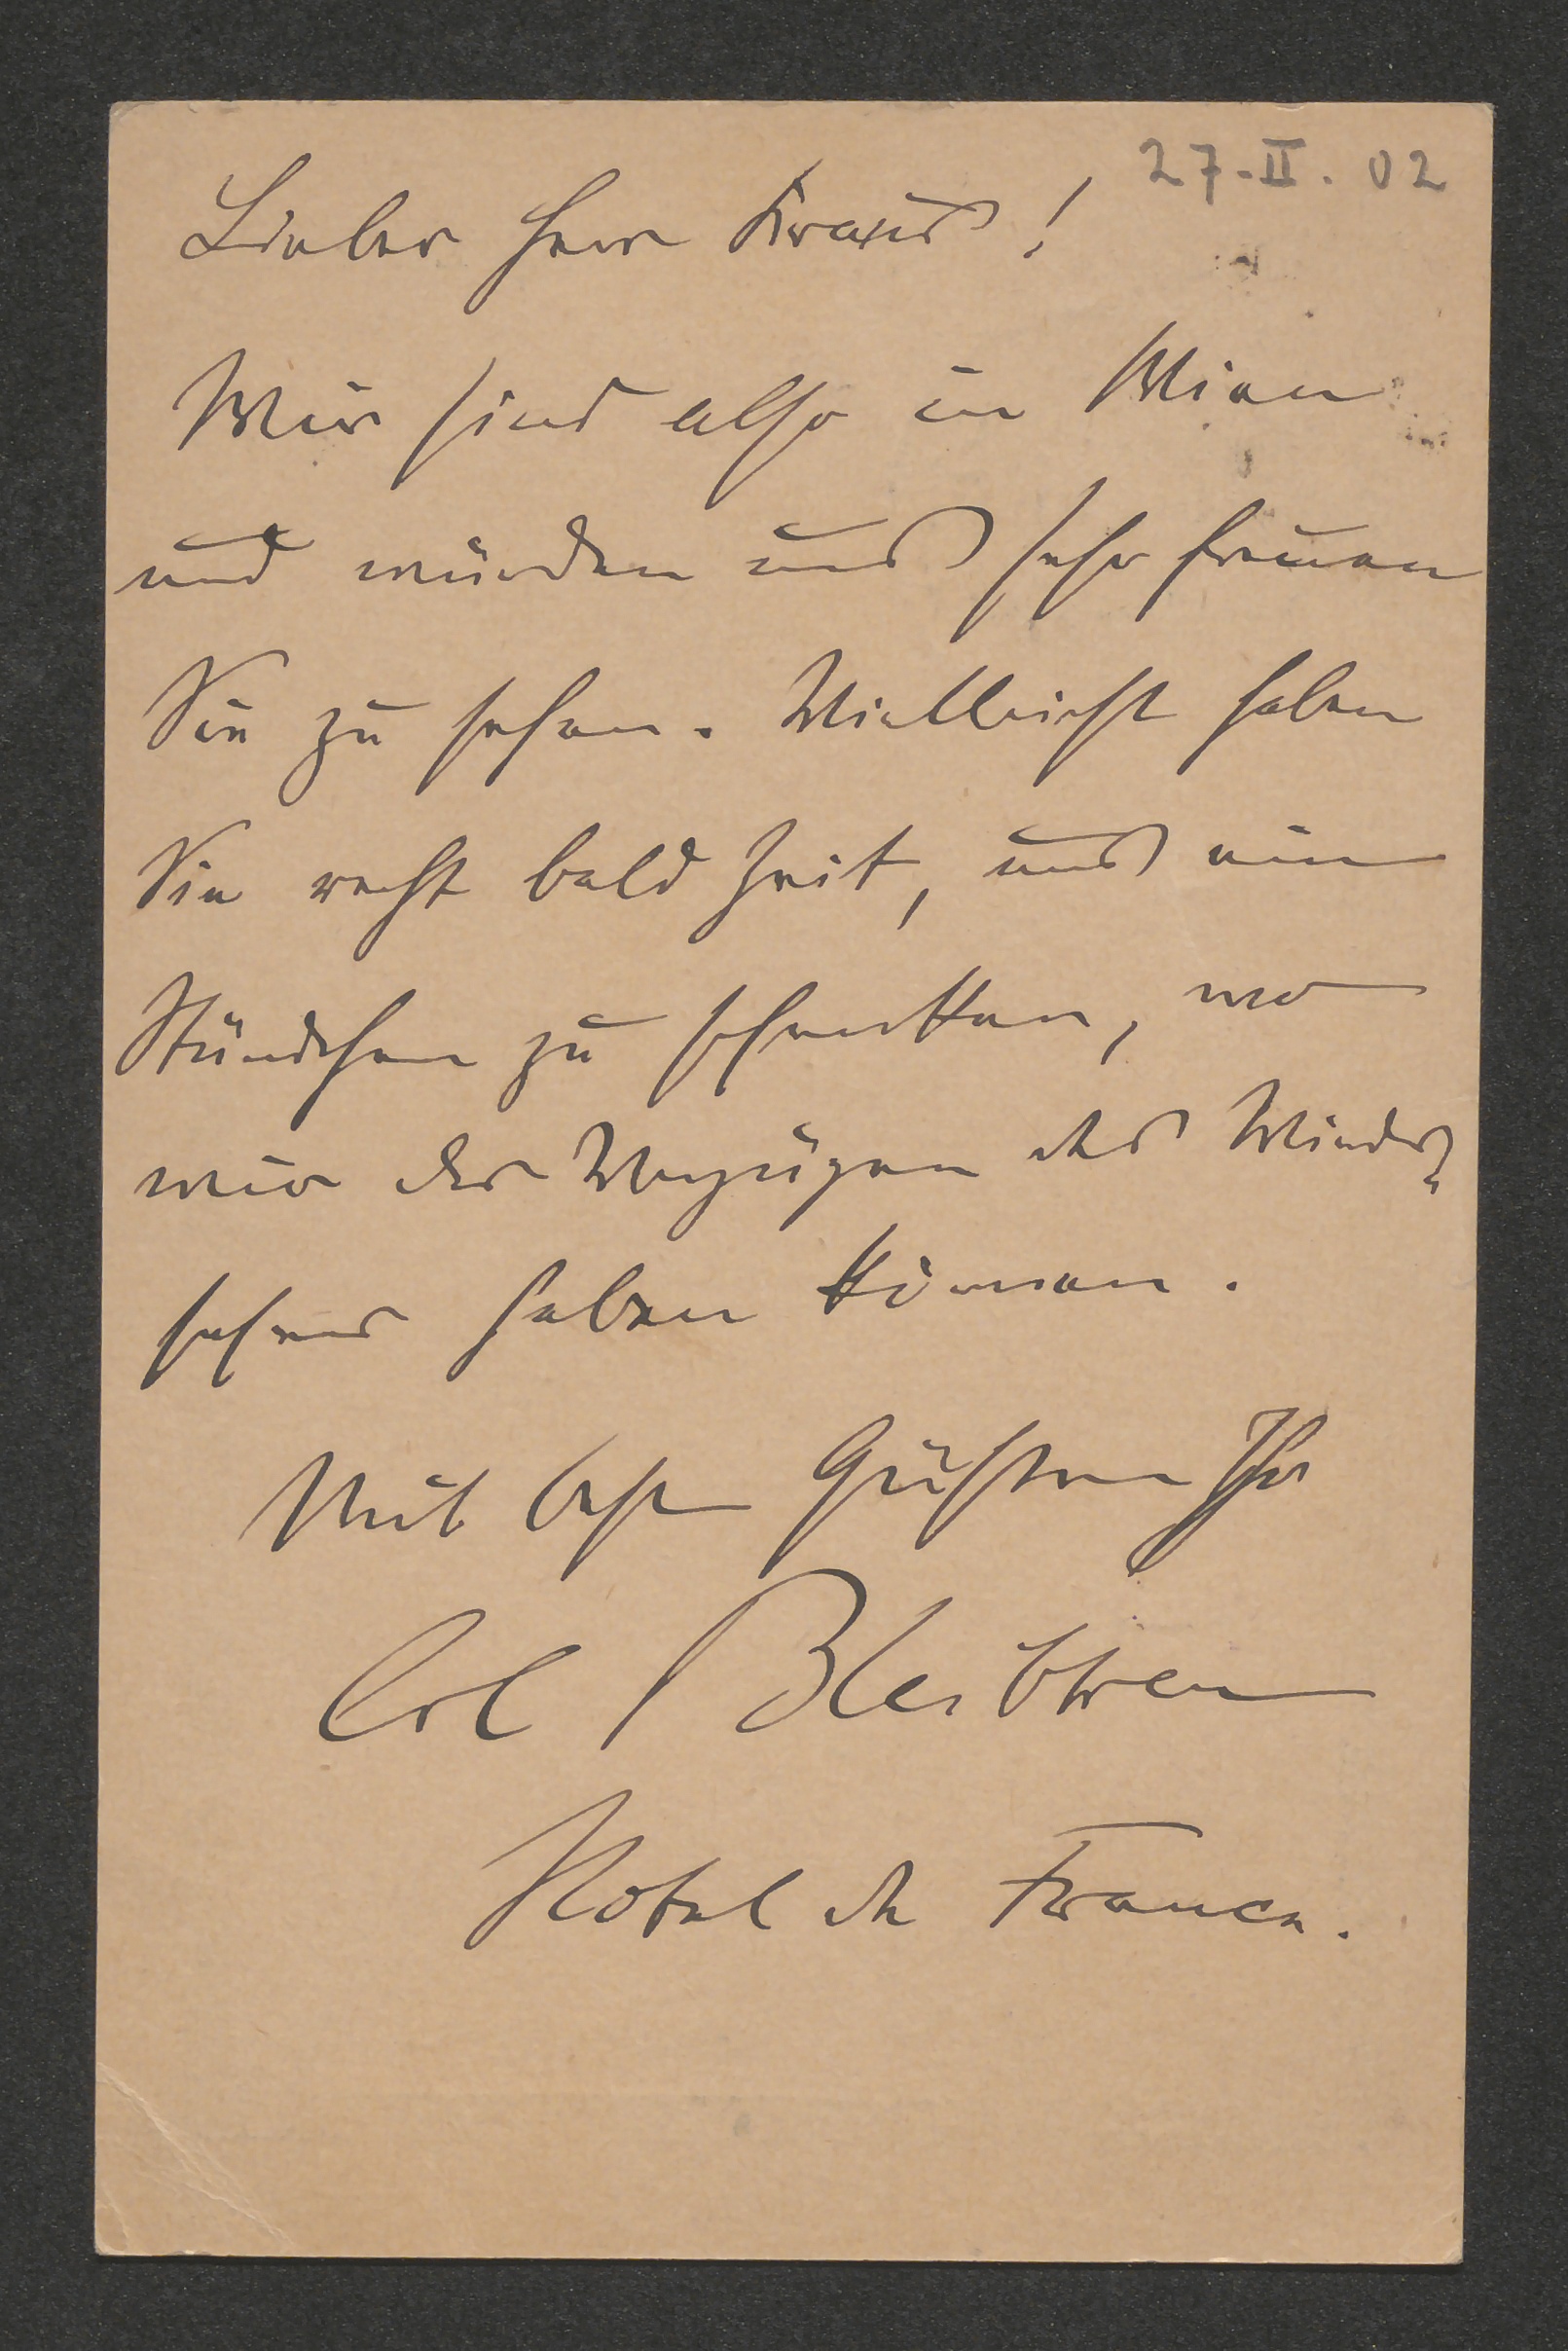 27-II. 02
Lieber Herr Kraus!
Wir sind also in Wien
und würden uns sehr freuen
Sie zu sehen. Vielleicht haben
Sie recht bald Zeit, uns ein
Stündchen zu schenken, wo
wir das Vergnügen des Wieder-
sehens haben können.
Mit besten Grüßen Ihr
Carl Bleibtreu
Hotel de France.